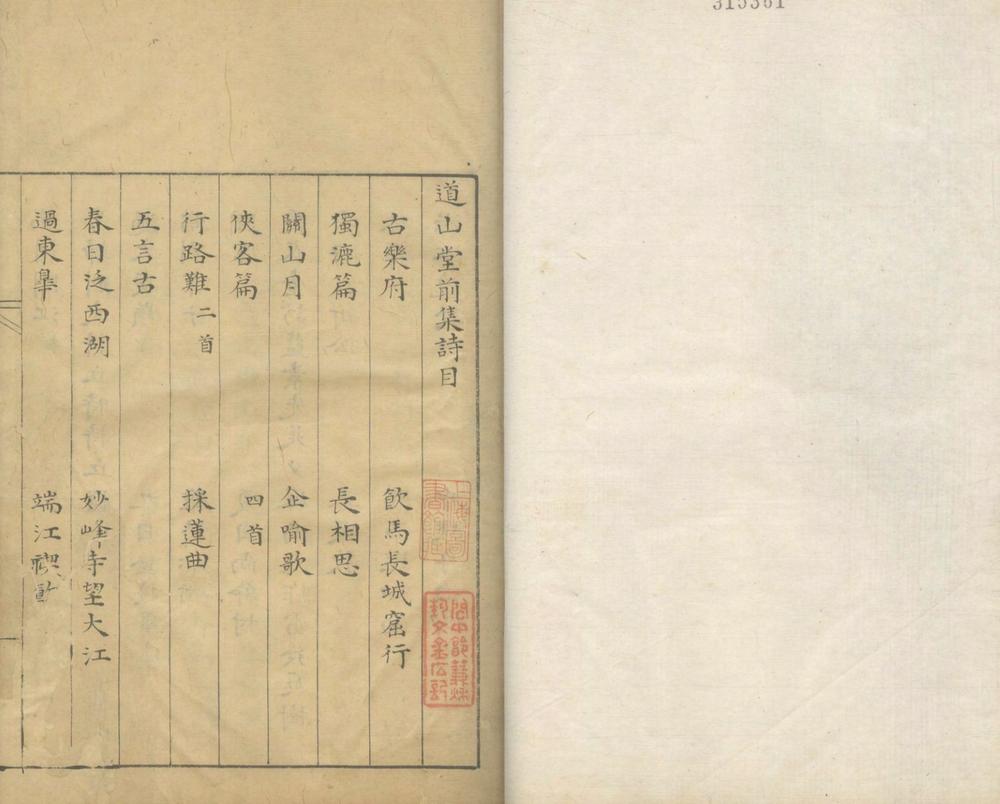 道山堂前集詩目
古樂府　飲馬長城窟行
獨漉篇　長相思
關山月　企喻歌
俠客篇　四首
行路難二首　採蓮曲
五言古
春日泛西湖　妙峰寺望大江
過東皐　端江禊
上海圖書館藏